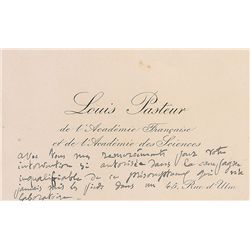 Louis Pasteur
de l'Académie Française
et de l'Académie des Sciences
avec tous mes remerciements pour votre
intervention si autorisée dans la campagne
inqualifiable de ce présomptueux qui n'a
jamais mis les pieds dans un
laboratoire.
45, Rue d'Ulm